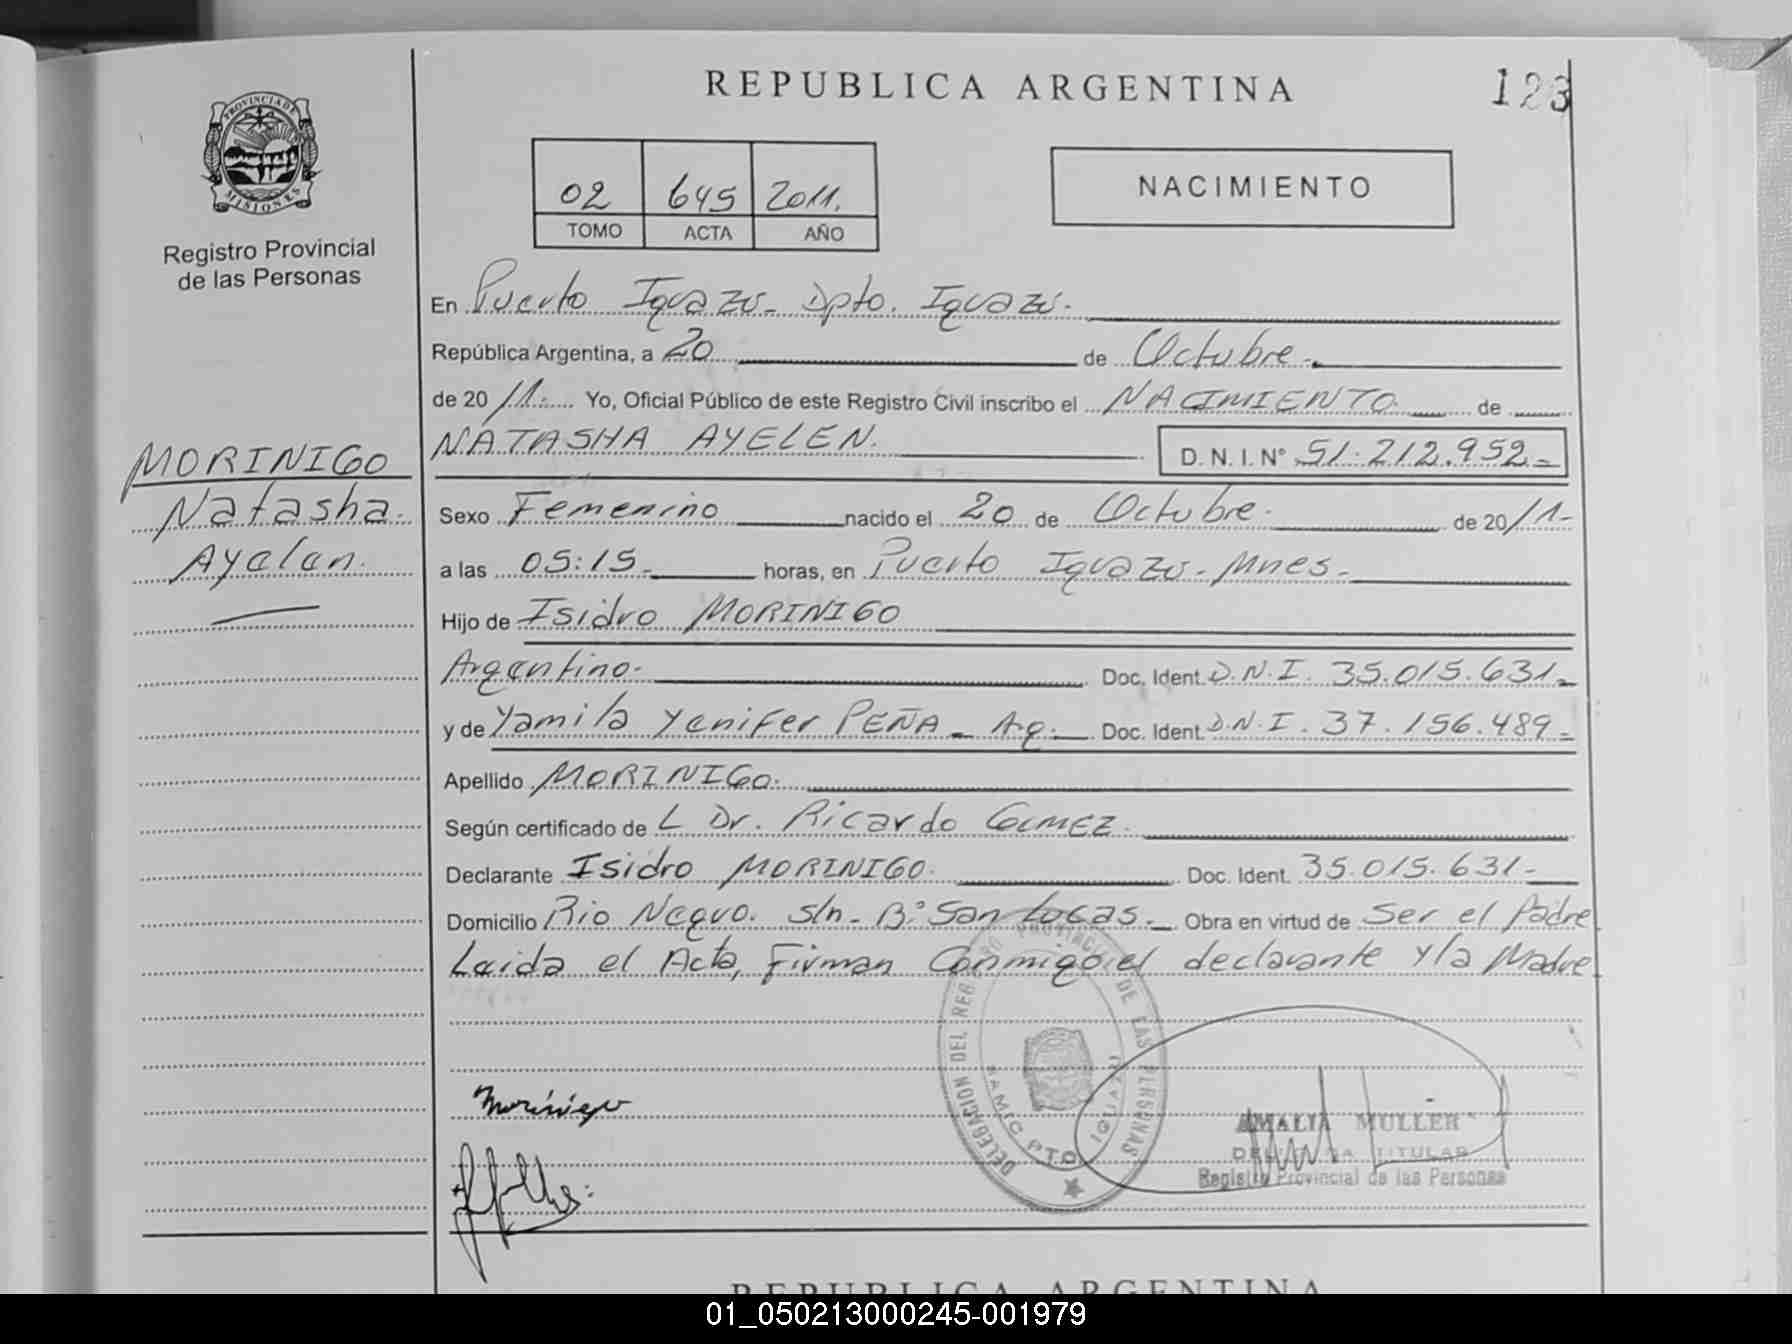 REPUBLICA ARGENTINA
123
PROVINCIA DE
MISIONES
Registro Provincial
de las Personas
02 645 2011.
TOMO ACTA AÑO
NACIMIENTO
En Puerto Iguazú - Dpto. Iguazú.
República Argentina, a 20 de Octubre.
de 20 11. Yo, Oficial Público de este Registro Civil inscribo el NACIMIENTO de
NATASHA AYELEN. D. N. I. N° 51.212.952.-
MORINIGO
Natasha.
Ayelen.
Sexo Femenino nacido el 20 de Octubre. de 20 11-
a las 05:15. horas, en Puerto Iguazú - Mnes.
Hijo de Isidro MORINIGO
Argentino. Doc. Ident. D.N.I. 35.015.631-
y de Yamila Yenifer PEÑA - Ag. Doc. Ident. D.N.I. 37.156.489-
Apellido MORINIGO.
Según certificado de L Dr. Ricardo GOMEZ.
Declarante Isidro MORINIGO. Doc. Ident. 35.015.631-
Domicilio Rio Negro. s/n - B.° San Lucas. Obra en virtud de Ser el Padre
Leida el Acta, Firman Conmigo el declarante y la Madre
DELEGACION DEL REGISTRO PROVINCIAL DE LAS PERSONAS
PTO IGUAZU
Morinigo
AMALIA MULLER
TITULAR
Registro Provincial de las Personas
REPUBLICA ARGENTINA
01_050213000245-001979